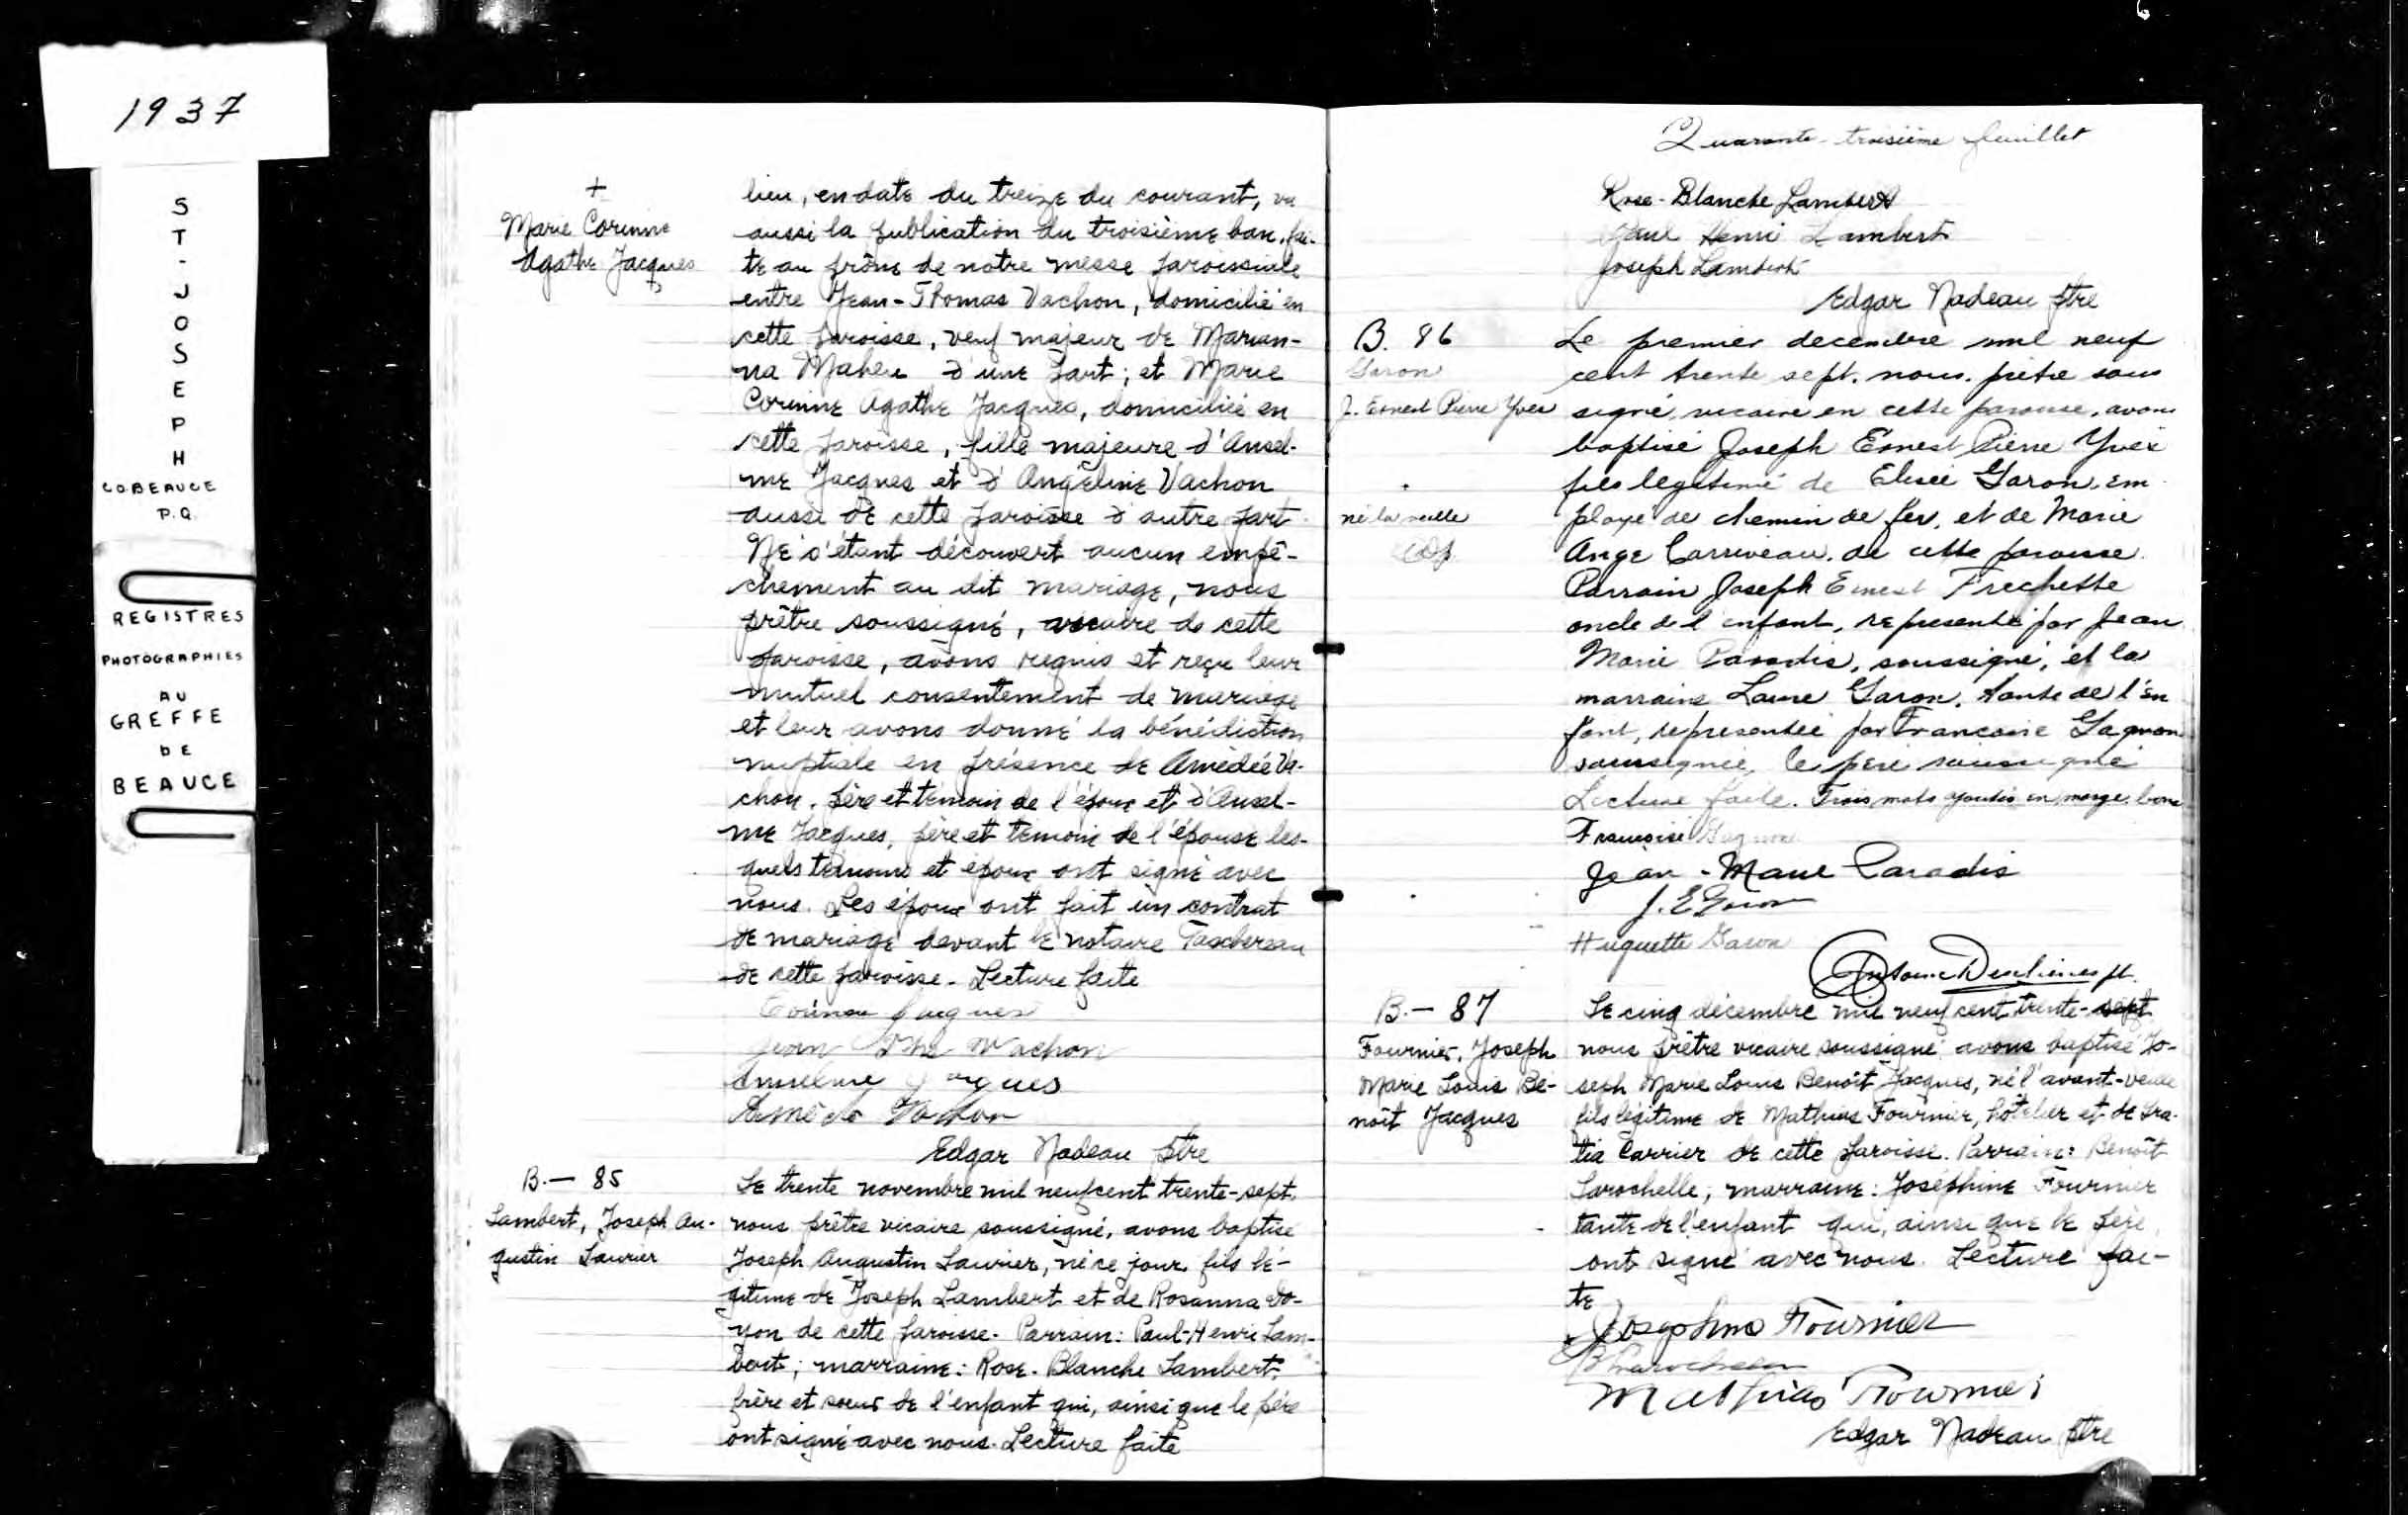 1937
ST-JOSEPH
CO.BEAUCE
P.Q.
REGISTRES
PHOTOGRAPHIES
AU
GREFFE
DE
BEAUCE
+
Marie Corinne
Agathe Jacques
lieu, en date du treize du courant, vu
aussi la publication du troisième ban, fai-
te au prône de notre messe paroissiale
entre Jean-Thomas Vachon, domicilié en
cette paroisse, veuf majeur de Marian-
na Maheu d'une part; et Marie
Corinne Agathe Jacques, domiciliée en
cette paroisse, fille majeure d'Ansel-
me Jacques et d'Angéline Vachon
aussi de cette paroisse d'autre part.
Ne s'étant découvert aucun empê-
chement au dit mariage, nous
prêtre soussigné, vicaire de cette
paroisse, avons requis et reçu leur
mutuel consentement de mariage
et leur avons donné la bénédiction
nuptiale en présence de Amédée Va-
chon, père et témoin de l'époux et d'Ansel-
me Jacques, père et témoin de l'épouse les-
quels témoins et époux ont signé avec
nous. Les époux ont fait un contrat
de mariage devant le notaire Taschereau
de cette paroisse. Lecture faite
Corinne Jacques
Jean Ths Vachon
Anselme Jacques
Amédé Vachon
Edgar Nadeau ptre
B.— 85
Lambert, Joseph Au-
gustin Laurier
Le trente novembre mil neuf cent trente-sept,
nous prêtre vicaire soussigné, avons baptisé
Joseph Augustin Laurier, né ce jour fils lé-
gitime de Joseph Lambert et de Rosanna Do-
yon de cette paroisse. Parrain: Paul-Henri Lam-
bert; marraine: Rose-Blanche Lambert,
frère et soeur de l'enfant qui, ainsi que le père
ont signé avec nous. Lecture faite
Quarante-troisième feuillet
Rose-Blanche Lambert
Paul Henri Lambert
Joseph Lambert
Edgar Nadeau ptre
B. 86
Garon
J. Ernest Pierre Yves
né la veille
Le premier decembre mil neuf
cent trente sept, nous, prêtre sous
signé, vicaire en cette paroisse, avons
baptisé Joseph Ernest Pierre Yves
fils legitime de Elisée Garon, em
ployé de chemin de fer, et de Marie
Ange Corriveau, de cette paroisse.
Parrain Joseph Ernest Frechette
oncle de l'enfant, representé par Jean
Marie Paradis, soussigné, et la
marraine Laure Garon, tante de l'en
fant, representée par Francoise Gagnon
soussignée, le père soussigné
Lecture faite. Trois mots ajoutés en marge, bons
Françoise Gagnon
Jean-Marie Paradis
J. E Garon
Huguette Garon
B.— 87
Fournier, Joseph
Marie Louis Be-
noît Jacques
Le cinq décembre mil neuf cent trente-sept
nous prêtre vicaire soussigné avons baptisé Jo-
seph Marie Louis Benoît Jacques, né l'avant-veille
fils légitime de Mathias Fournier, hôtelier et de Gra-
tia Carrier de cette paroisse. Parrain: Benoît
Larochelle; marraine: Joséphine Fournier
tante de l'enfant qui, ainsi que le père,
ont signé avec nous. Lecture fai-
te
Josephine Fournier
B Larochelle
Mathias Fournier
Edgar Nadeau ptre